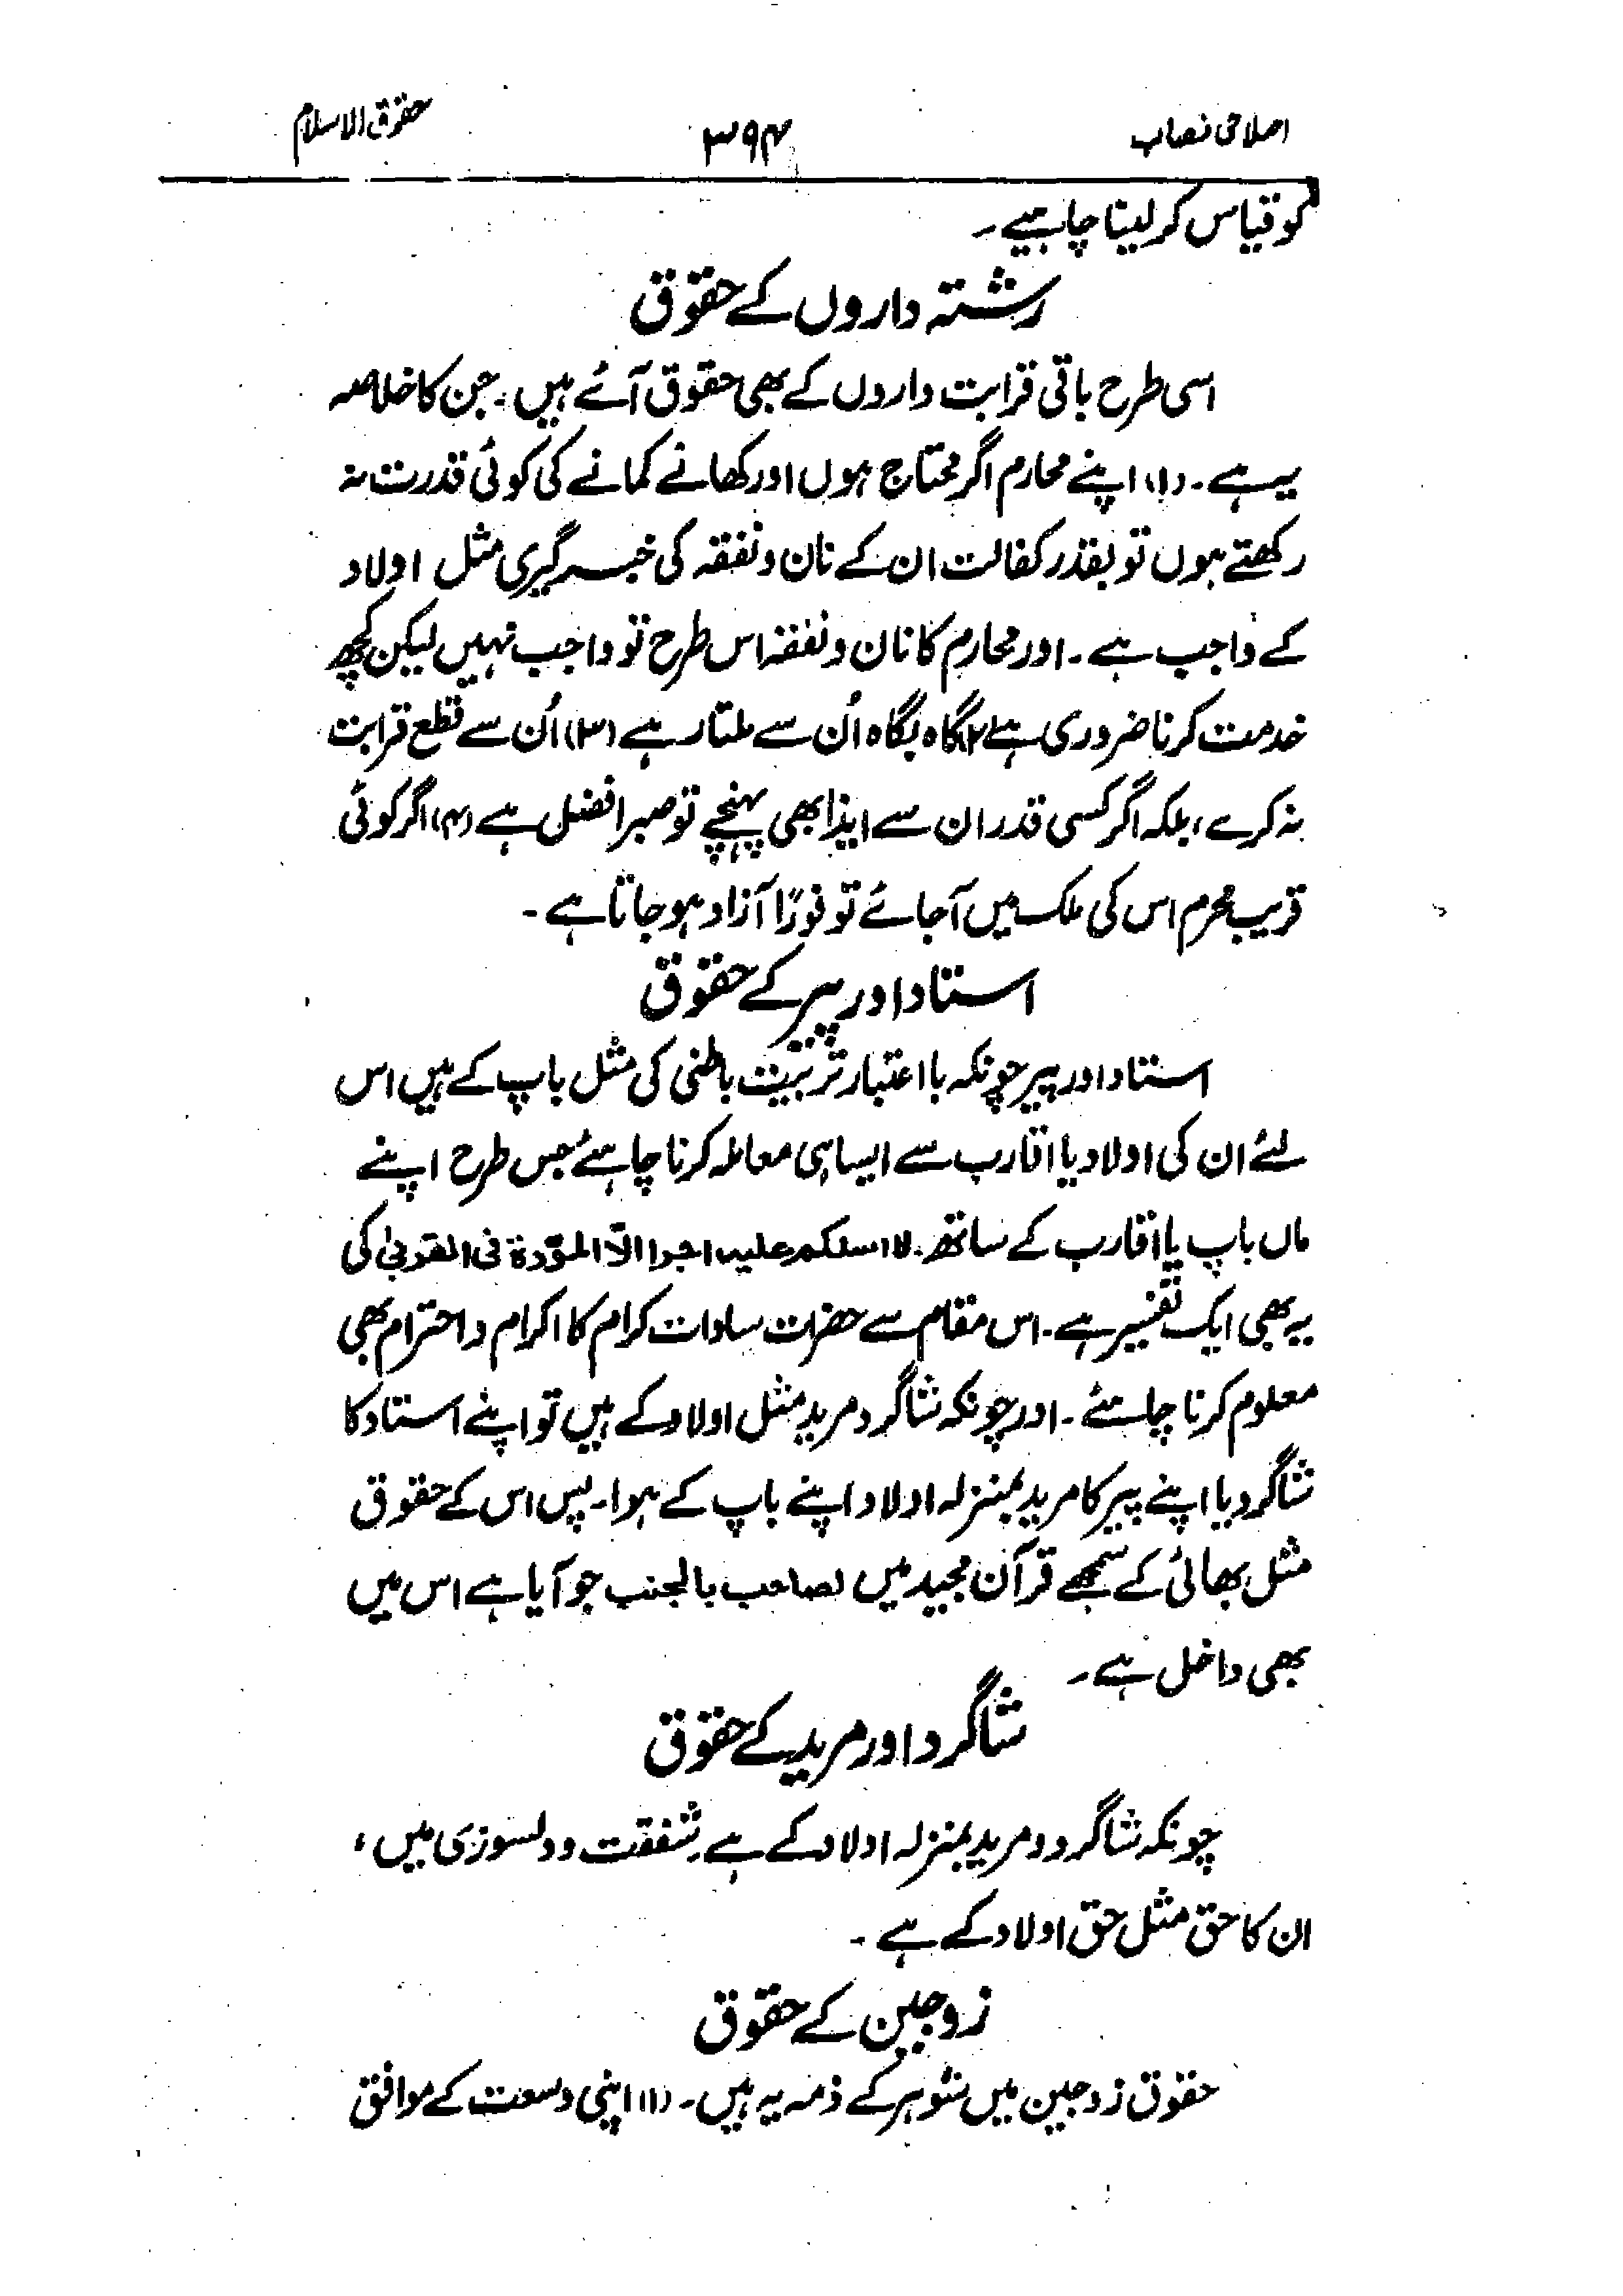 اصلاحی نصاب ۳۹۴ حقوق الاسلام
کو قیاس کر لینا چاہیے۔
رشتہ داروں کے حقوق
اسی طرح باقی قرابت داروں کے بھی حقوق آئے ہیں، جن کا خلاصہ
یہ ہے۔ (۱) اپنے محارم اگر محتاج ہوں اور کھانے کمانے کی کوئی قدرت نہ
رکھتے ہوں تو بقدر کفالت ان کے نان و نفقہ کی خبر گیری مثل اولاد
کے واجب ہے۔ اور محارم کا نان و نفقہ اس طرح تو واجب نہیں لیکن کچھ
خدمت کرنا ضروری ہے (۲) گاہ بگاہ اُن سے ملتا رہے (۳) اُن سے قطع قرابت
نہ کرے، بلکہ اگر کسی قدر ان سے ایذا بھی پہنچے تو صبر افضل ہے (۴) اگر کوئی
قریب محرم اس کی ملک میں آجائے تو فوراً آزاد ہو جاتا ہے۔
استاد اور پیر کے حقوق
استاد اور پیر چونکہ با اعتبار تربیت باطنی کی مثل باپ کے ہیں اس
لئے ان کی اولاد یا اقارب سے ایسا ہی معاملہ کرنا چاہئے جس طرح اپنے
ماں باپ یا اقارب کے ساتھ۔ لا اسئلکم علیہ اجرا الّا المودّة فی القربیٰ کی
یہ بھی ایک تفسیر ہے۔ اس مقام سے حضرات سادات کرام کا اکرام و احترام بھی
معلوم کرنا چاہئے۔ اور چونکہ شاگرد مرید مثل اولاد کے ہیں تو اپنے استاد کا
شاگرد یا اپنے پیر کا مرید بمنزلہ اولاد اپنے باپ کے ہوا۔ پس اس کے حقوق
مثل بھائی کے سمجھے قرآن مجید میں لصاحب بالجنب جو آیا ہے اس میں
بھی داخل ہے۔
شاگرد اور مرید کے حقوق
چونکہ شاگرد و مرید بمنزلہ اولاد کے ہے۔ شفقت و دلسوزی میں،
ان کا حق مثل حق اولاد کے ہے۔
زوجین کے حقوق
حقوق زوجین میں شوہر کے ذمہ یہ ہیں۔ (۱) اپنی وسعت کے موافق